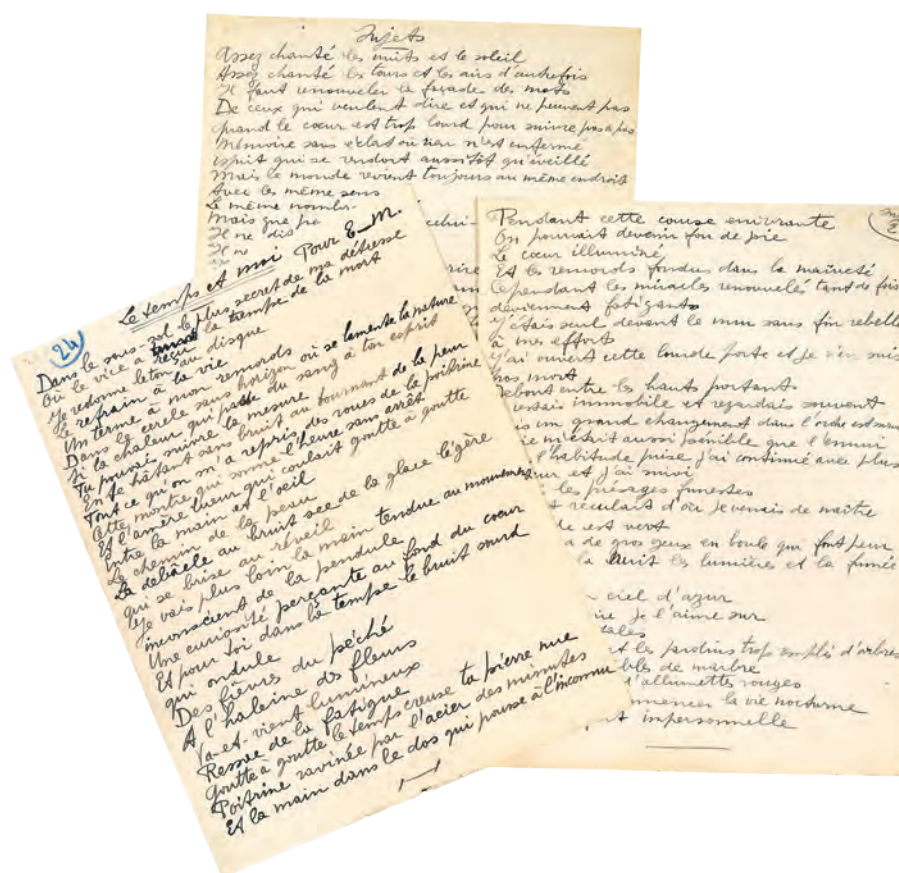 Sujets
Assez chanté les nuits et le soleil
Assez chanté les tours et les airs d'autrefois
Il faut renouveler la façade des mots
De ceux qui veulent dire et qui ne peuvent pas
quand le cœur est trop lourd pour suivre pas à pas
Mémoire sans éclat où rien n'est enfermé
esprit qui se rendort aussitôt qu'éveillé
Mais le monde revient toujours au même endroit
Avec les même sens
Le même nombre
Mais que
Il ne dis
24
Le temps et moi Pour E_M.
Dans le sous-sol le plus secret de ma détresse
Où le vice a reçu la trempe de la mort
Je redonne le ton au disque
Le refrain à la vie
Un terme à mon remords
Dans le cercle sans horizon où se lamente la nature
Si la chaleur qui passe du sang à ton esprit
Tu pouvais suivre la mesure
En te hâtant sans bruit au tournant de la peur
Tout ce qu'on m'a repris des roues de la poitrine
Cette montre qui sonne l'heure sans arrêt
Et l'amère lueur qui coulait goutte à goutte
Entre la main et l'œil
Le chemin de la peau
La debâcle au bruit sec de la glace légère
qui se brise au réveil
Je vais plus loin la main tendue au mouvement
inconscient de la pendule
Une curiosité perçante au fond du cœur
Et pour toi dans la tempe le bruit sourd
qui ondule
Des fièvres du péché
A l'haleine des fleurs
Va-et-vient lumineux
Ressac de la fatigue
Goutte à goutte le temps creuse ta pierre nue
Poitrine ravinée par l'acier des minutes
Et la main dans le dos qui pousse à l'inconnu
Pendant cette course enivrante
On pouvait devenir fou de joie
Le cœur illuminé
Et les remords fondus dans la naïveté
Cependant les miracles renouvelés tant de fois
deviennent fatigants
J'étais seul devant le mur sans fin rebelle
à mes efforts
J'ai ouvert cette lourde porte et je n'en suis
pas mort
Debout entre les hauts portants
restais immobile et regardais souvent
un grand changement dans l'ordre
m'était aussi pénible que l'ennui
l'habitude prise j'ai continué avec plus
et j'ai suivi
les présages funestes
reculant d'où je venais de naître
est vert
de gros yeux en boule qui font peur
la nuit les lumières et la fumée
ciel d'azur
je l'aime sur
les jardins trop emplis d'arbres
de marbre
d'allumettes rouges
la vie nocturne
impersonnelle